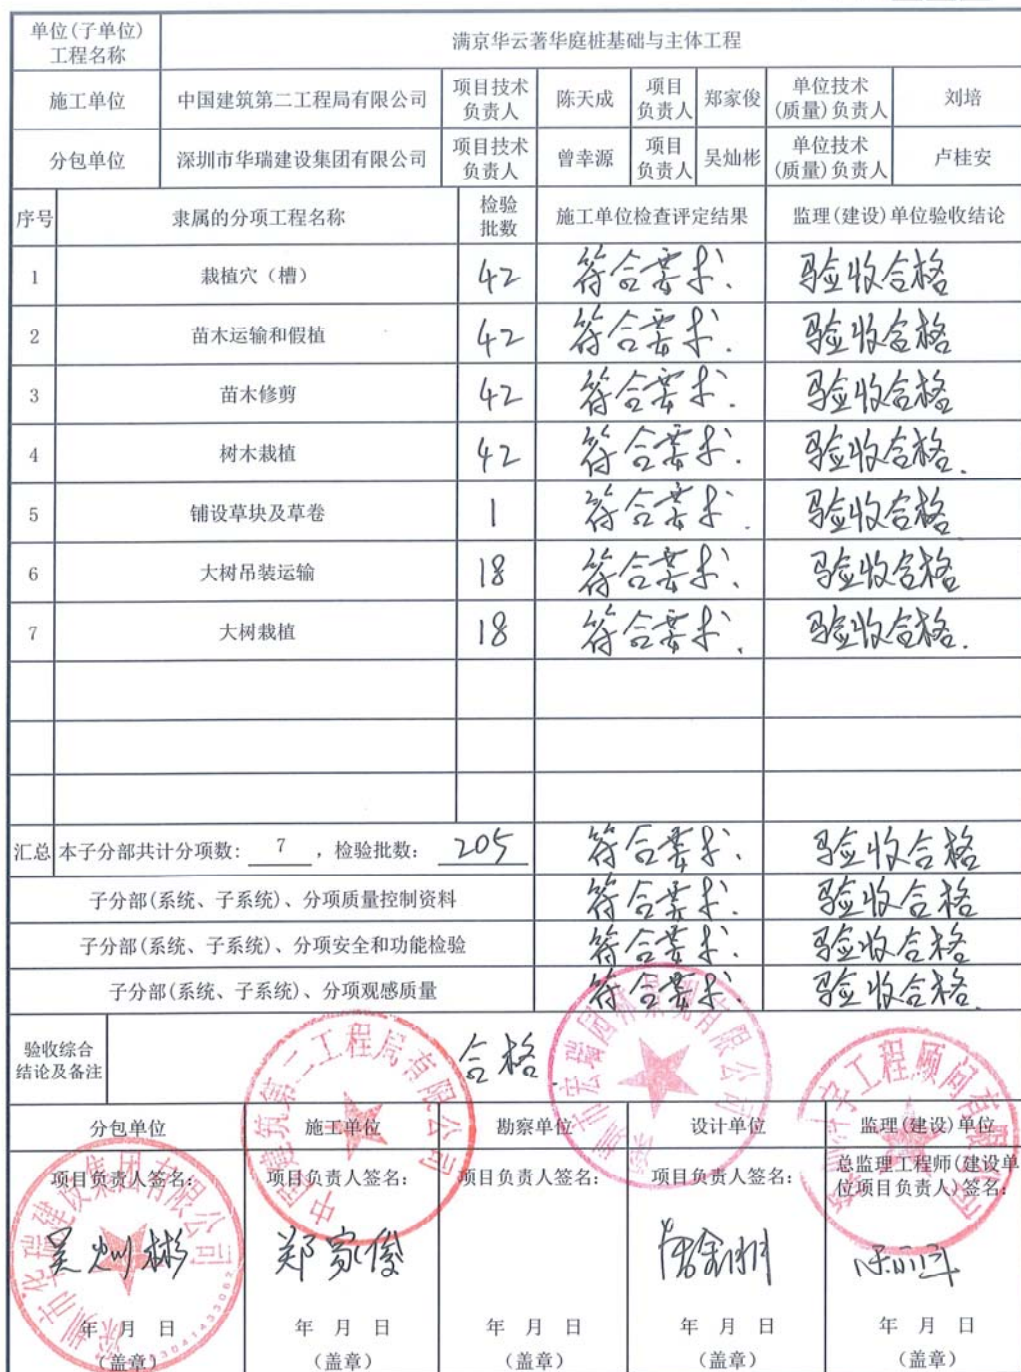 单位(子单位)
工程名称
满京华云著华庭桩基础与主体工程
施工单位
中国建筑第二工程局有限公司
项目技术
负责人
陈天成
项目
负责人
郑家俊
单位技术
(质量)负责人
刘培
分包单位
深圳市华瑞建设集团有限公司
项目技术
负责人
曾幸源
项目
负责人
吴灿彬
单位技术
(质量)负责人
卢桂安
序号
隶属的分项工程名称
检验
批数
施工单位检查评定结果
监理(建设)单位验收结论
1 栽植穴（槽） 42 符合要求. 验收合格
2 苗木运输和假植 42 符合要求. 验收合格
3 苗木修剪 42 符合要求. 验收合格
4 树木栽植 42 符合要求. 验收合格.
5 铺设草块及草卷 1 符合要求. 验收合格
6 大树吊装运输 18 符合要求. 验收合格
7 大树栽植 18 符合要求. 验收合格.
汇总 本子分部共计分项数: 7 ，检验批数: 205 符合要求. 验收合格
子分部(系统、子系统)、分项质量控制资料 符合要求. 验收合格
子分部(系统、子系统)、分项安全和功能检验 符合要求. 验收合格
子分部(系统、子系统)、分项观感质量 符合要求. 验收合格.
验收综合
结论及备注
合格
分包单位 施工单位 勘察单位 设计单位 监理(建设)单位
项目负责人签名: 项目负责人签名: 项目负责人签名: 项目负责人签名: 总监理工程师(建设单
位项目负责人)签名:
吴灿彬 郑家俊
年 月 日 年 月 日 年 月 日 年 月 日 年 月 日
(盖章) (盖章) (盖章) (盖章) (盖章)
深圳市华瑞建设集团有限公司
中国建筑第二工程局有限公司
工程顾问有限公司